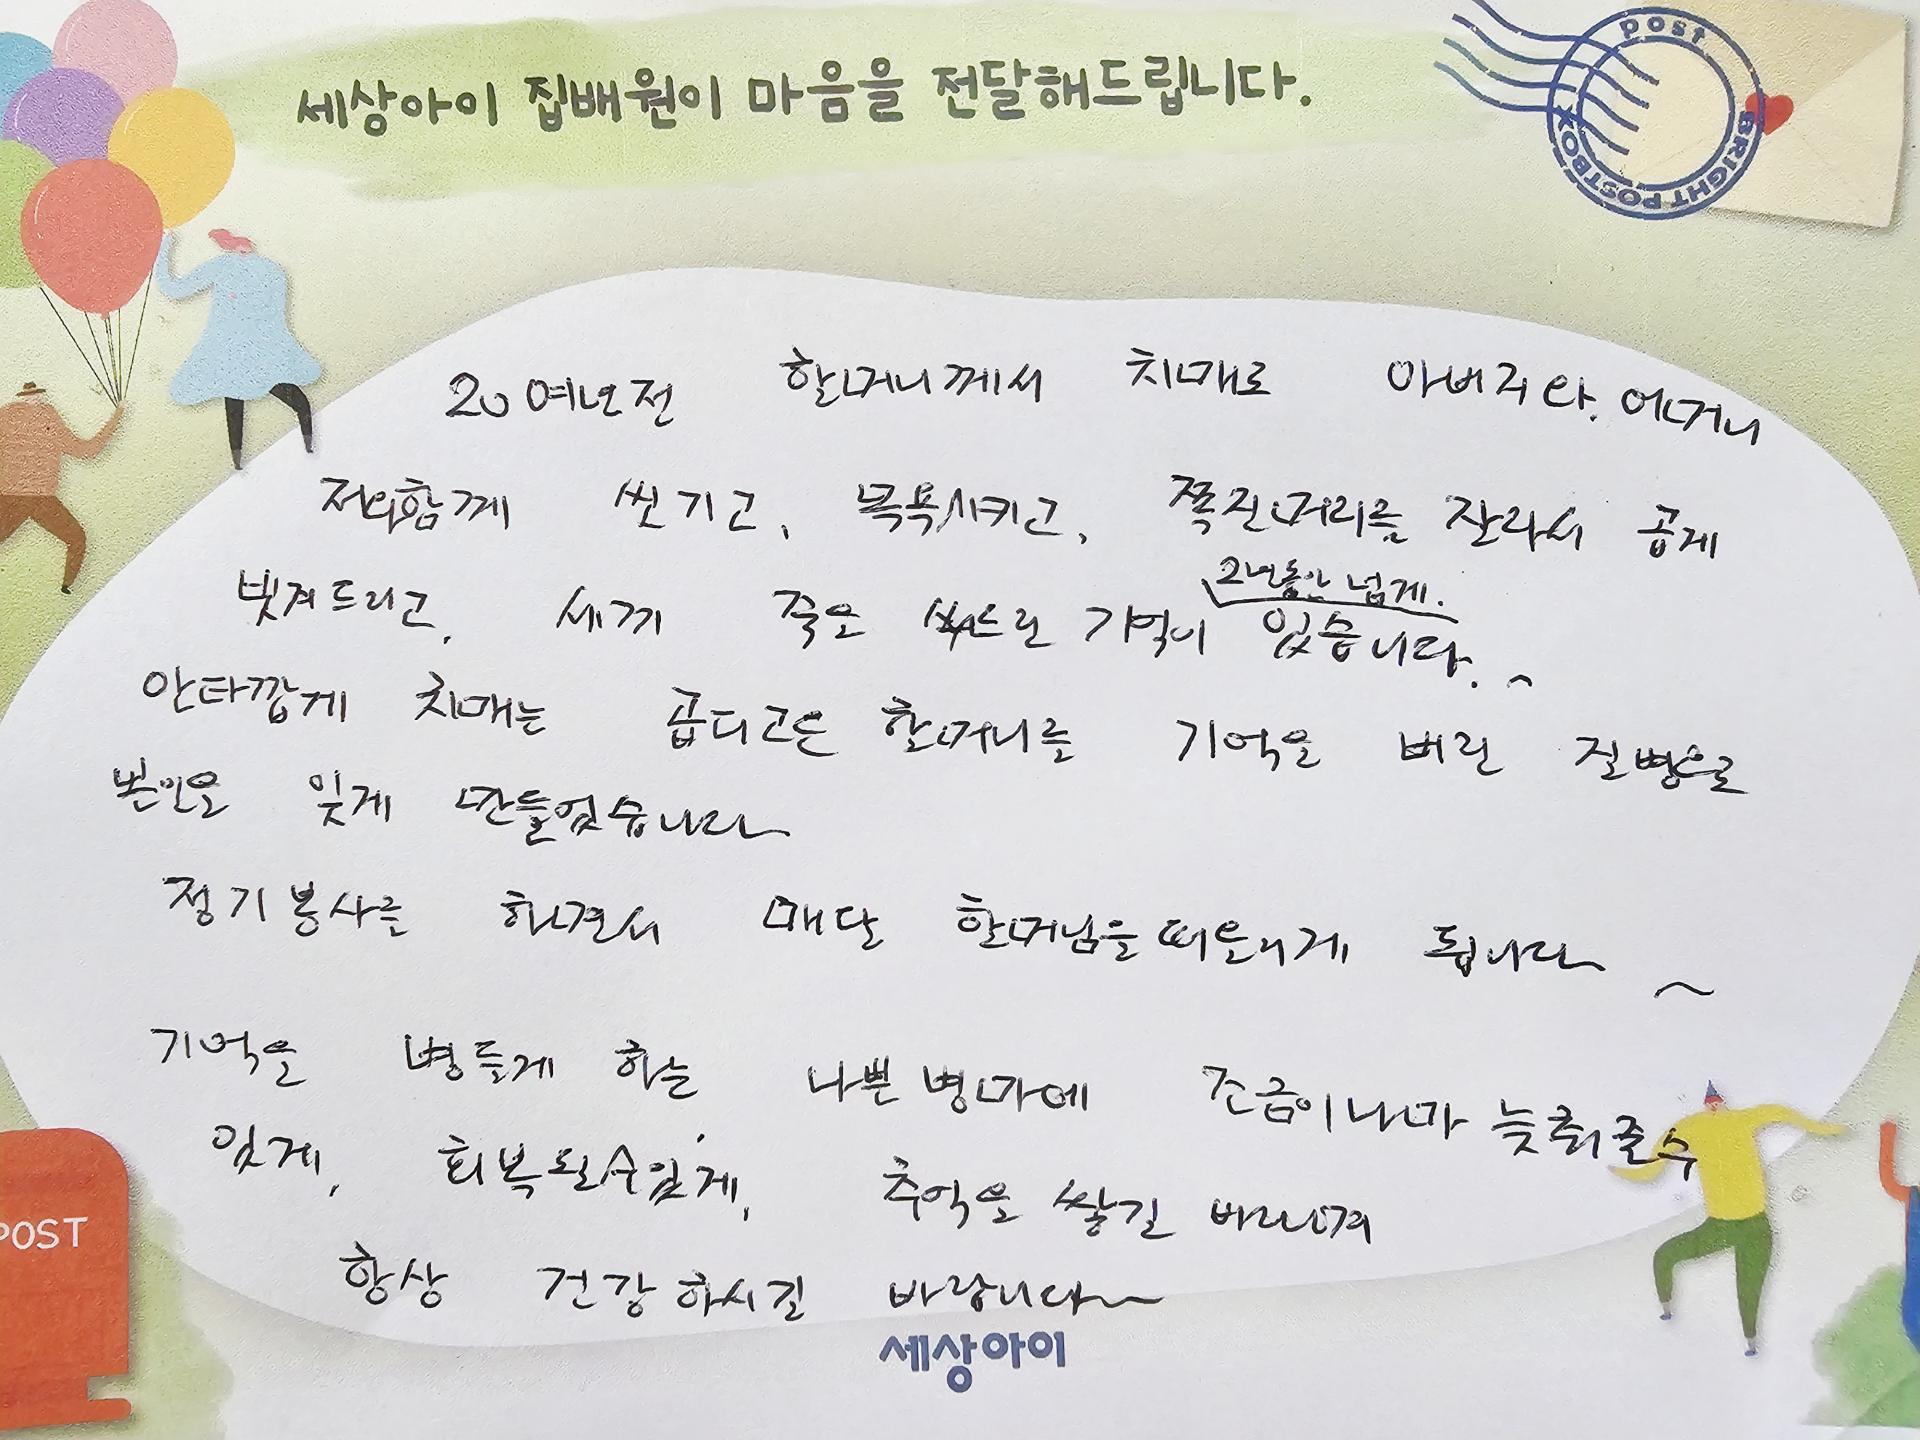 세상아이 집배원이 마음을 전달해드립니다.
post
BRIGHT POSTBOX
20여년전 할머니께서 치매로 아버지랑. 어머니
저와함께 씻기고, 목욕시키고, 쪽진머리를 잘라서 곱게
빗겨드리고, 세끼 죽을 쒀드린 기억이 2년동안 넘게. 있습니다. ~
안타깝게 치매는 곱디고은 할머니를 기억을 버린 질병으로
본인을 잊게 만들었습니다~
정기봉사를 하면서 매달 할머님을 떠올리게 됩니다~ ~
기억을 병들게 하는 나쁜 병마에 조금이나마 늦춰줄수
있게, 회복될수있게, 추억을 쌓길 바라며
항상 건강하시길 바랍니다~
POST
세상아이